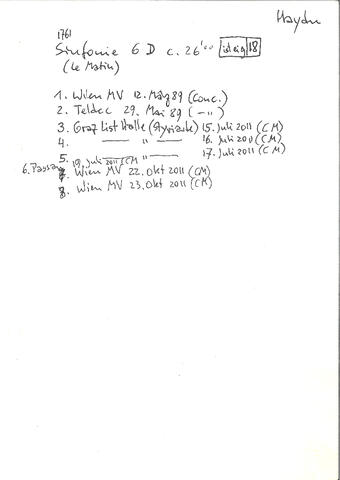 Haydn
1761
Sinfonie 6 D c. 26'00 18
(Le Matin)
1. Wien MV 12. März 89 (Conc.)
2. Teldec 29. Mai 89 (—"—)
3. Graz List Halle (Styriarte) 15. Juli 2011 (CM)
4. —— " —— 16. Juli 2011 (CM)
5. —— " —— 17. Juli 2011 (CM)
6. Passau 19. Juli 2011 (CM)
7. Wien MV 22. Okt 2011 (CM)
8. Wien MV 23. Okt 2011 (CM)